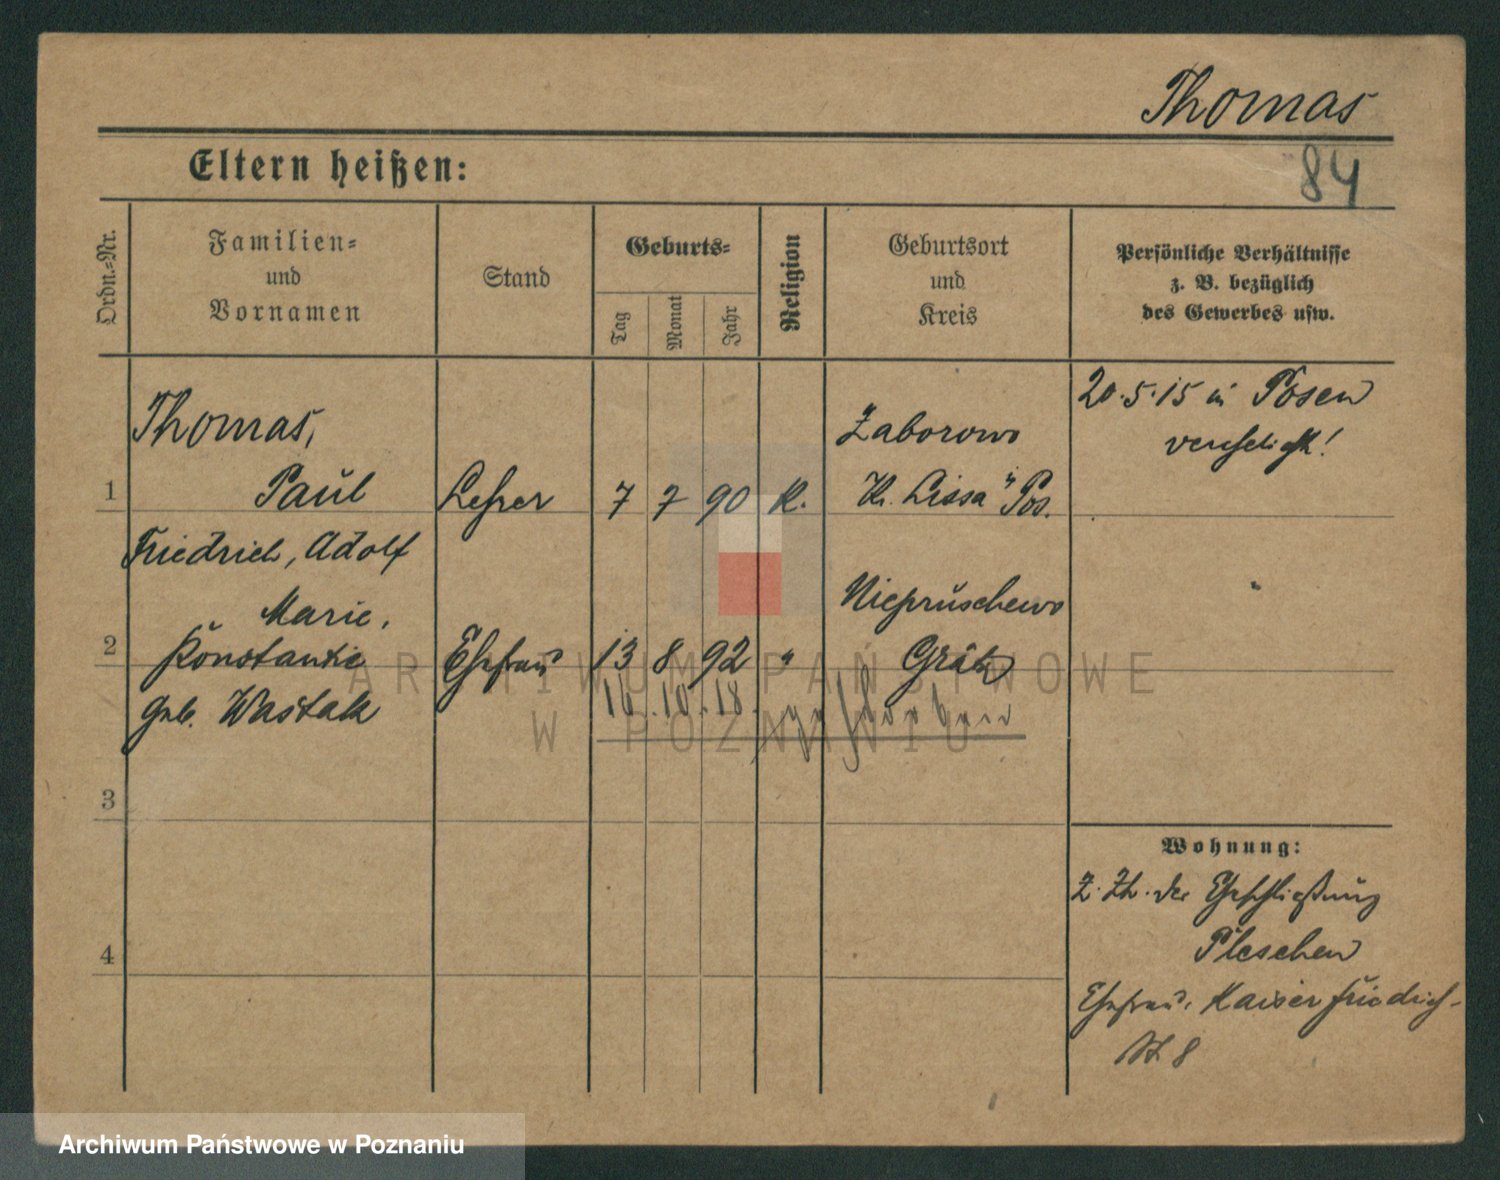 Thomas
84
Eltern heißen:
Ordn.-Nr.
Familien-
und
Vornamen
Stand
Geburts-
Tag
Monat
Jahr
Religion
Geburtsort
und
Kreis
Persönliche Verhältnisse
z. B. bezüglich
des Gewerbes usw.
Thomas,
Paul
1
Lehrer
7
7
90
K.
Zaborowo
Kr. Lissa i/Pos.
20.5.15 in Posen
verehelicht!
Friedrich, Adolf
Marie,
2
Konstantie
Ehefrau
13
8
92
"
Niepruschewo
Grätz
geb. Wastak
16.10.18. gestorben
3
4
Wohnung:
Z. Zt. der Eheschließung
Pleschen
Ehefrau: Kaiser Friedrich-
St. 8
ARCHIWUM PAŃSTWOWE
W POZNANIU
Archiwum Państwowe w Poznaniu